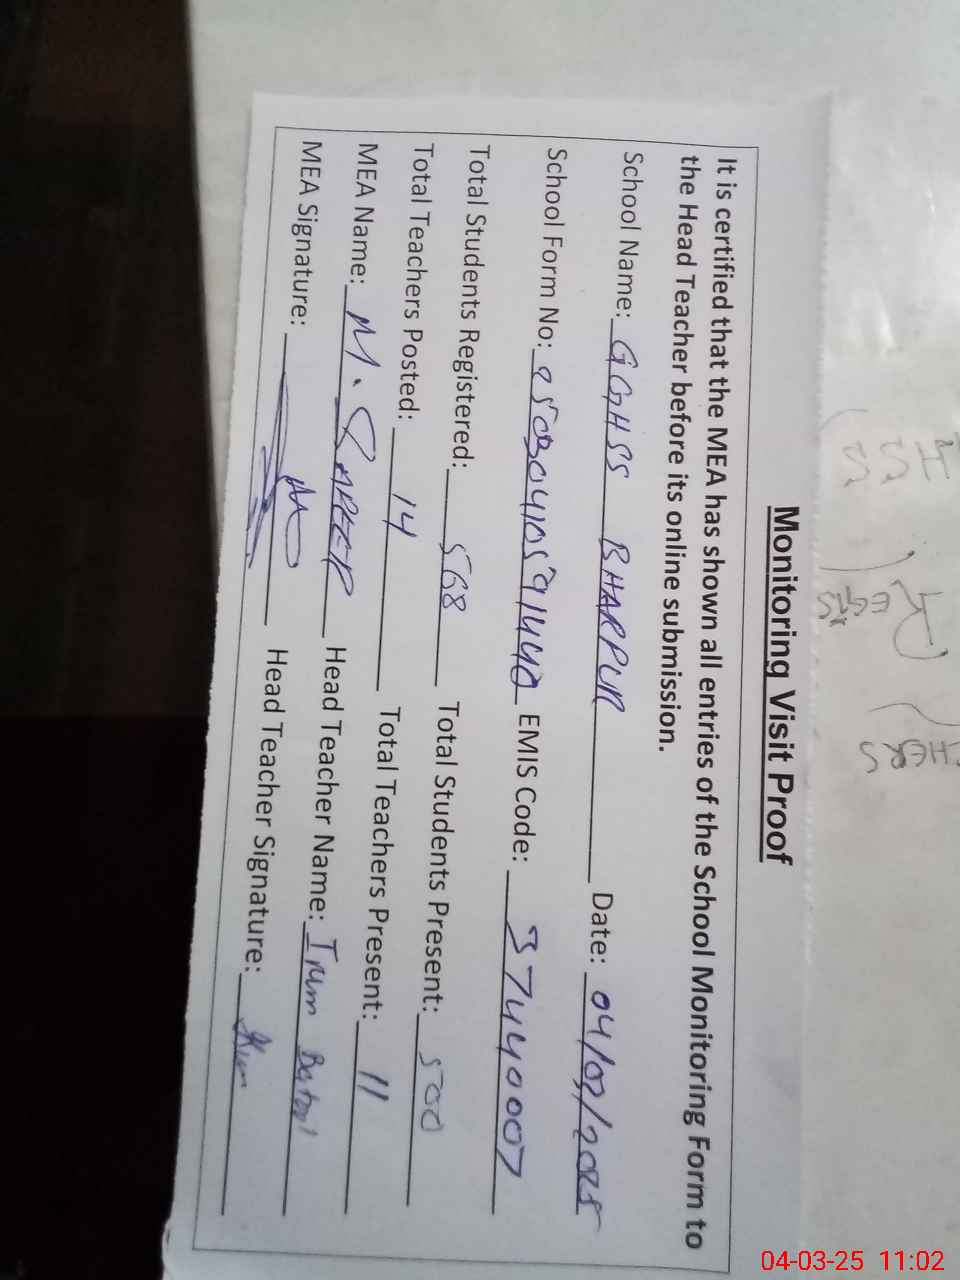 Monitoring Visit Proof
It is certified that the MEA has shown all entries of the School Monitoring Form to
the Head Teacher before its online submission.
School Name: GGHSS BHARPUR Date: 04/03/2025
School Form No: EMIS Code: 37440007
Total Students Registered: 568 Total Students Present: 500
Total Teachers Posted: 14 Total Teachers Present: 11
MEA Name: M. Head Teacher Name: Irum Batool
MEA Signature: Head Teacher Signature:
HSS
REGTS
HERS
04-03-25 11:02